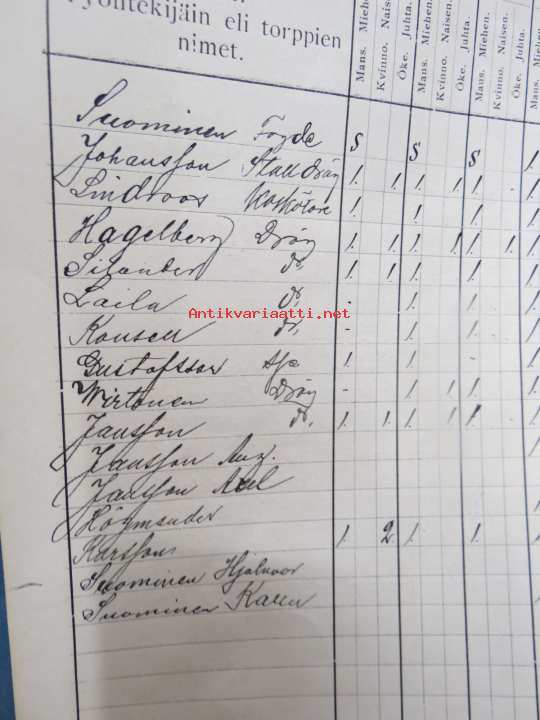 Työntekijäin eli torppien
nimet.
Mans. Miehen. Kvinno. Naisen. Öke. Juhta. Mans. Miehen. Kvinno. Naisen. Öke. Juhta. Mans. Miehen. Kvinno. Naisen. Öke. Juhta. Mans. Miehen.
Suominen Fogde S S S 1.
Johansson Stalldräng 1. 1. 1. 1. 1. 1.
Lindroos 1. 1. 1. 1.
Hagelberg Dräng 1. 1. 1. 1. 1. 1. 1.
Silander do. 1. 1. 1. 1. 1.
Laila do. - 1. 1. 1.
Konsell do. - 1. 1. 1.
Gustafsson 1. 1. - 1.
Wirtonen Dräng - 1. 1. 1. 1.
Jansson do. 1. 1. 1. 1. 1. 1.
Jansson Aug.
Jansson Axel
Högmander
Karlsson 1. 2. 1. 1. 1.
Suominen Hjalmar
Suominen Kalle
Antikvariaatti.net